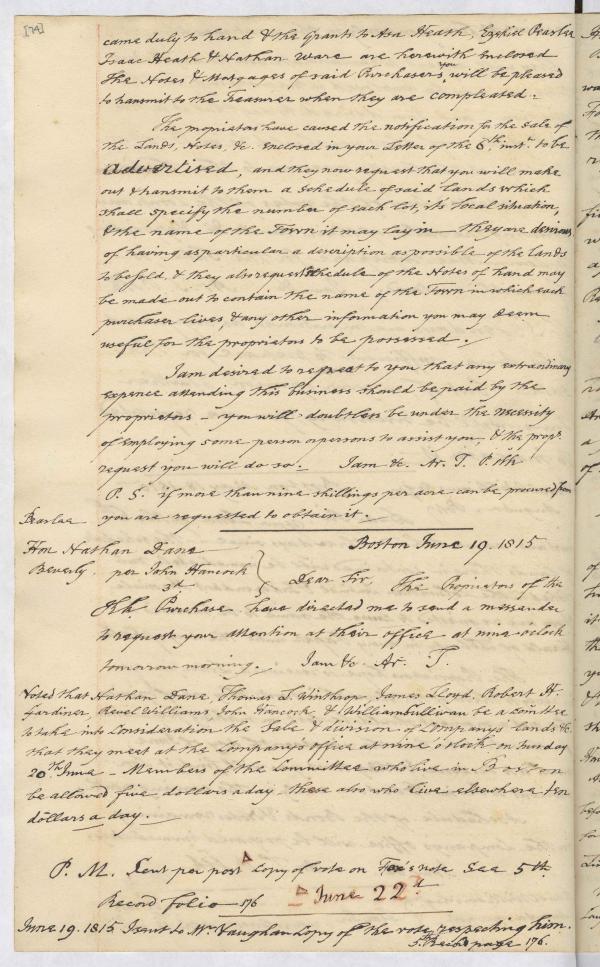 [74]
came duly to hand & the grants to Asa Heath, Ezekiel Pearlee
Isaac Heath & Nathan Ware are herewith Inclosed
the Notes & Mortgages of said Purchasers, you will be pleased
to transmit to the Treasurer when they are compleated.
The proprietors have caused the notification for the sale of
the Lands, Notes, &c. enclosed in your Letter of the 6th inst. to be
advertised, and they now request that you will make
out & transmit to them a schedule of said lands which
shall specify the number of each lot, its local situation,
& the name of the Town it may lay in they are desirous
of having as particular a description as possible of the lands
to be sold, & they also request schedule of the Notes of hand may
be made out to contain the name of the Town in which each
purchaser lives, & any other information you may deem
useful for the proprietors to be possessed.
I am desired to to you that any extraordinary
expence attending this business should be paid by the
proprietors – you will doubtless be under the necessity
of employing some person or persons to assist you, & the propr.
request you will do so. I am &c. Ar. T. P. Kk
P. S. if more than nine shillings per acre can be procured from
Pearlee you are requested to obtain it.
Boston June 19. 1815
Hon Nathan Dane
Beverly. per John Hancock
3d
Dear Sir, The Propriators of the
Kk. Purchase, have directed me to send a messender
to request your attention at their office at nine o'clock
tomorrow morning. I am &c. Ar. T.
Voted that Nathan Dane, Thomas L. Winthrop, James Lloyd, Robert H.
Gardiner, Reuel Williams, John Hancock, & William Sullivan be a Committee
to take into consideration the Sale & division of Company's lands &c.
that they meet at the Company's office at nine o'clock on Tuesday
20th June – Members of the Committee who live in Boston
be allowed five dollars a day those also who live elsewhere ten
dollars a day.
P. M. Sent per post copy of vote on note See 5th
Record folio 176 June 22d
June 19. 1815 I sent to Mr. Vaughan Copy of the vote respecting him.
5th Record page 176.